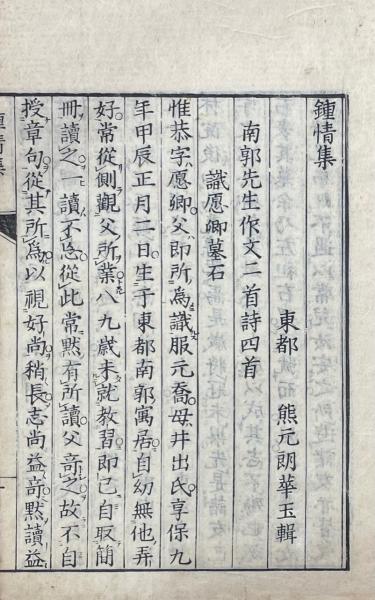 鍾情集
東都　熊元朗華玉輯
南郭先生作文二首詩四首
識愿卿墓石
惟恭字愿卿父即所為識服元喬母井出氏享保九
年甲辰正月二日生于東都南郭寓居自幼無他弄
好常從側觀父所業八九歲未就教習即已自取簡
冊讀之一讀不忩從此常默有所讀父奇之故不自
授章句從其所為以視好尚稍長志尚益奇默讀益